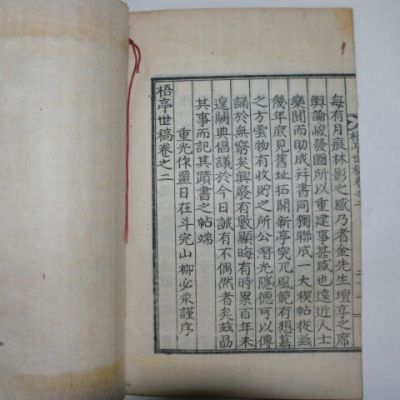 每有月痕林影之感乃者金先生壇享之席
輿論峻發圖所以重建事甚盛也遠近人士
樂聞而助成幷書同獨聯成一大稧帖從玆
幾年度見舊址拓開新亭突兀風範有想慕
之方雲物有收貯之所公潛光隱德可以傳
誦於無窮矣興廢有數顯晦有時累百年未
遑闕典倡議於今日誠有不偶然者矣玆畧
其事而記其蹟書之帖端
重光作噩日在斗完山柳必永謹序
梧亭世稿卷之二